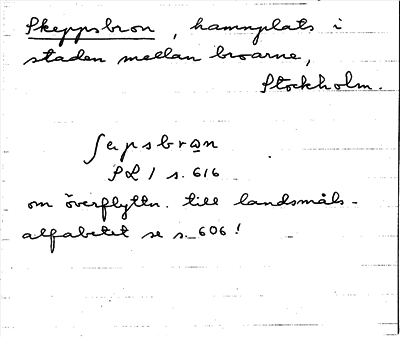 Skeppsbron, hamnplats i
staden mellan broarne,
Stockholm.
ʃɛpsbrɷn
PL 1 s. 616
om överflyttn. till landsmåls-
alfabetet se s. 606!